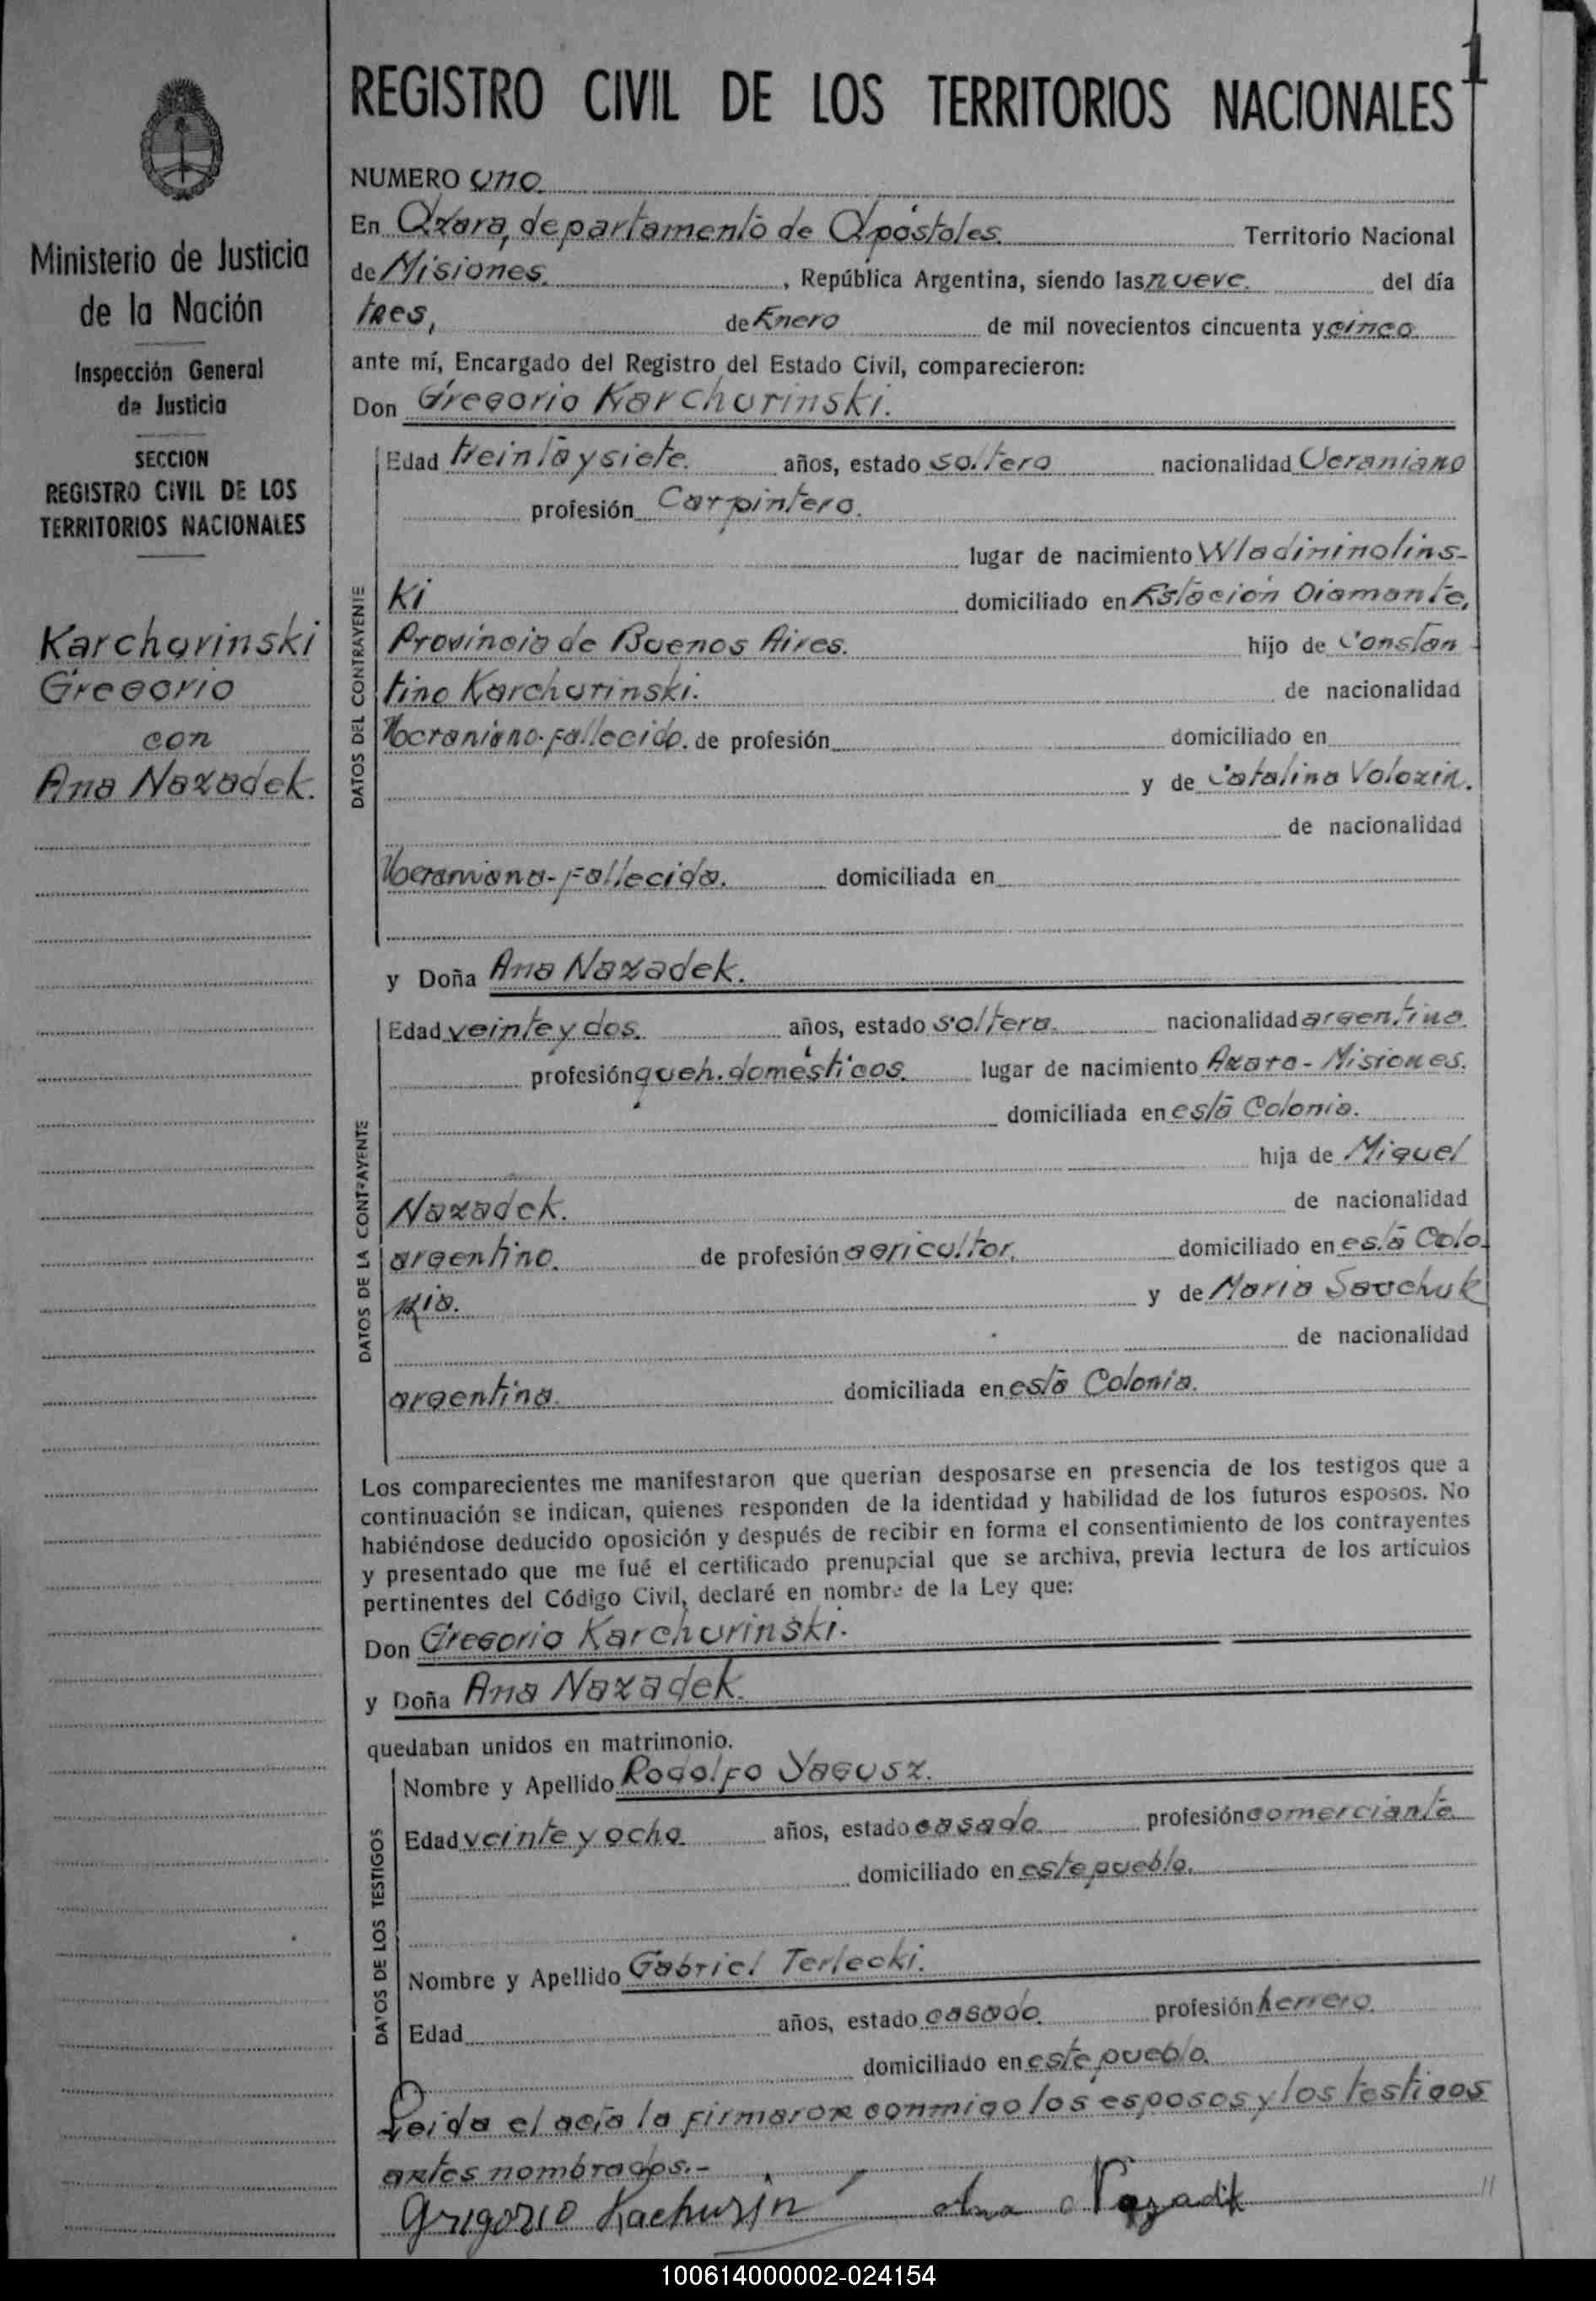 1
REGISTRO CIVIL DE LOS TERRITORIOS NACIONALES
Ministerio de Justicia
de la Nación
Inspección General
de Justicia
SECCION
REGISTRO CIVIL DE LOS
TERRITORIOS NACIONALES
Karchurinski
Gregorio
con
Ana Nazadek.
NUMERO Uno.
En Azara, departamento de Apóstoles. Territorio Nacional
de Misiones. , República Argentina, siendo las nueve. del día
tres, de Enero de mil novecientos cincuenta y cinco
ante mí, Encargado del Registro del Estado Civil, comparecieron:
Don Gregorio Karchurinski.
DATOS DEL CONTRAYENTE
Edad treinta y siete. años, estado soltero nacionalidad Ucraniano
profesión Carpintero.
lugar de nacimiento Wladininolins-
ki domiciliado en Estación Diamante,
Provincia de Buenos Aires. hijo de Constan
tino Karchurinski. de nacionalidad
Ucraniano-fallecido. de profesión domiciliado en
y de Catalina Volozin.
de nacionalidad
Ucraniana-fallecida. domiciliada en
y Doña Ana Nazadek.
DATOS DE LA CONTRAYENTE
Edad veinte y dos. años, estado soltera. nacionalidad argentina.
profesión queh. domésticos. lugar de nacimiento Azara - Misiones.
domiciliada en esta Colonia.
hija de Miguel
Nazadek. de nacionalidad
argentino. de profesión agricultor. domiciliado en esta Colo
nia. y de Maria Sauchuk
de nacionalidad
argentina. domiciliada en esta Colonia.
Los comparecientes me manifestaron que querían desposarse en presencia de los testigos que a
continuación se indican, quienes responden de la identidad y habilidad de los futuros esposos. No
habiéndose deducido oposición y después de recibir en forma el consentimiento de los contrayentes
y presentado que me fué el certificado prenupcial que se archiva, previa lectura de los artículos
pertinentes del Código Civil, declaré en nombre de la Ley que:
Don Gregorio Karchurinski.
y Doña Ana Nazadek.
quedaban unidos en matrimonio.
DATOS DE LOS TESTIGOS
Nombre y Apellido Rodolfo Yagusz.
Edad veinte y ocho años, estado casado profesión comerciante
domiciliado en este pueblo.
Nombre y Apellido Gabriel Terlecki.
Edad años, estado casado. profesión herrero.
domiciliado en este pueblo.
Leida el acta la firmaron conmigo los esposos y los testigos
antes nombrados.-
Grigorio Kachurin Ana Nazadek
100614000002-024154